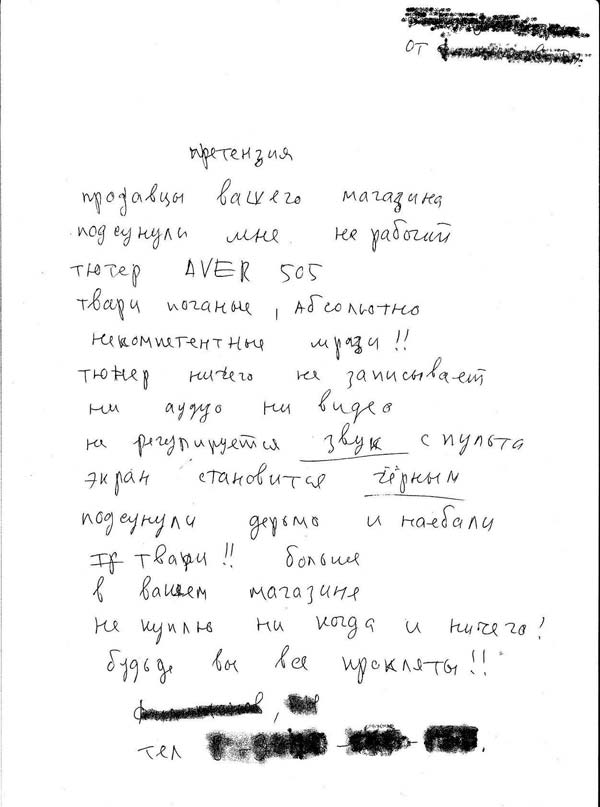 от
претензия
продавцы вашего магазина
подсунули мне не рабочий
тютер AVER 505
твари поганые, абсолютно
некомпетентные мрази!!
тюнер ничего не записывает
ни аудуо ни видео
не регурируется звук с пульта
экран становится чёрным
подсунули дерьмо и наебали
твари!! больше
в вашем магазине
не куплю ни когда и ничего!
будьде вы все прокляты!!
тел